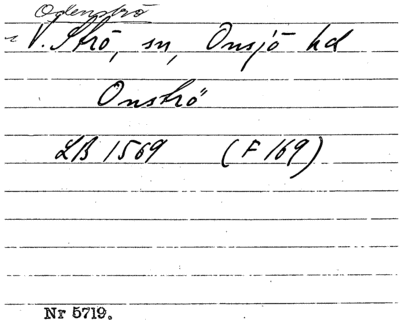 Odenströ
V. Strö, sn, Onsjö hd
Onströ
LB 1569 (F 169)
Nr 5719.